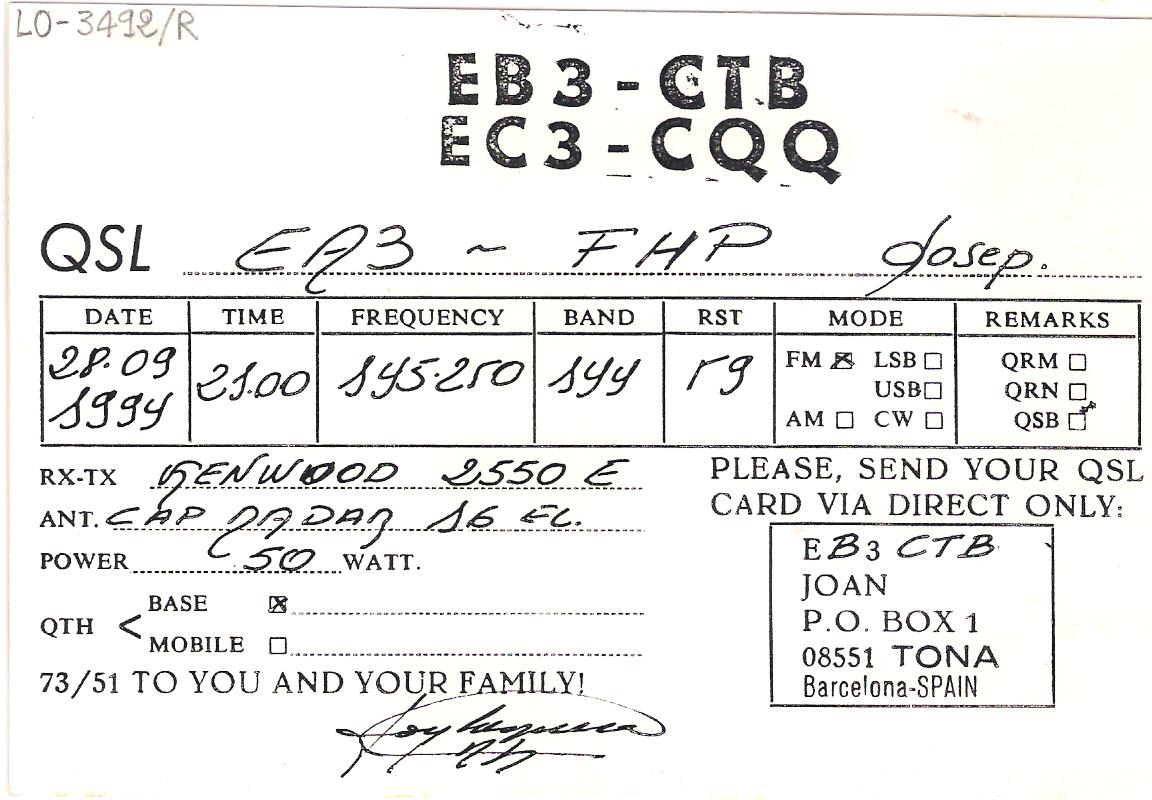 LO-3492/R
EB3-CTB
EC3-CQQ
QSL EA3 ~ FHP Josep.
DATE TIME FREQUENCY BAND RST MODE REMARKS
28.09 1994 21.00 145.250 144 59 FM ☒ LSB ☐ QRM ☐
USB ☐ QRN ☐
AM ☐ CW ☐ QSB ☐
RX-TX KENWOOD 2550 E
ANT. CAP RADAR 16 EL.
POWER 50 WATT.
QTH < BASE ☒
MOBILE ☐
73/51 TO YOU AND YOUR FAMILY!
PLEASE, SEND YOUR QSL
CARD VIA DIRECT ONLY:
EB3 CTB
JOAN
P.O. BOX 1
08551 TONA
Barcelona-SPAIN